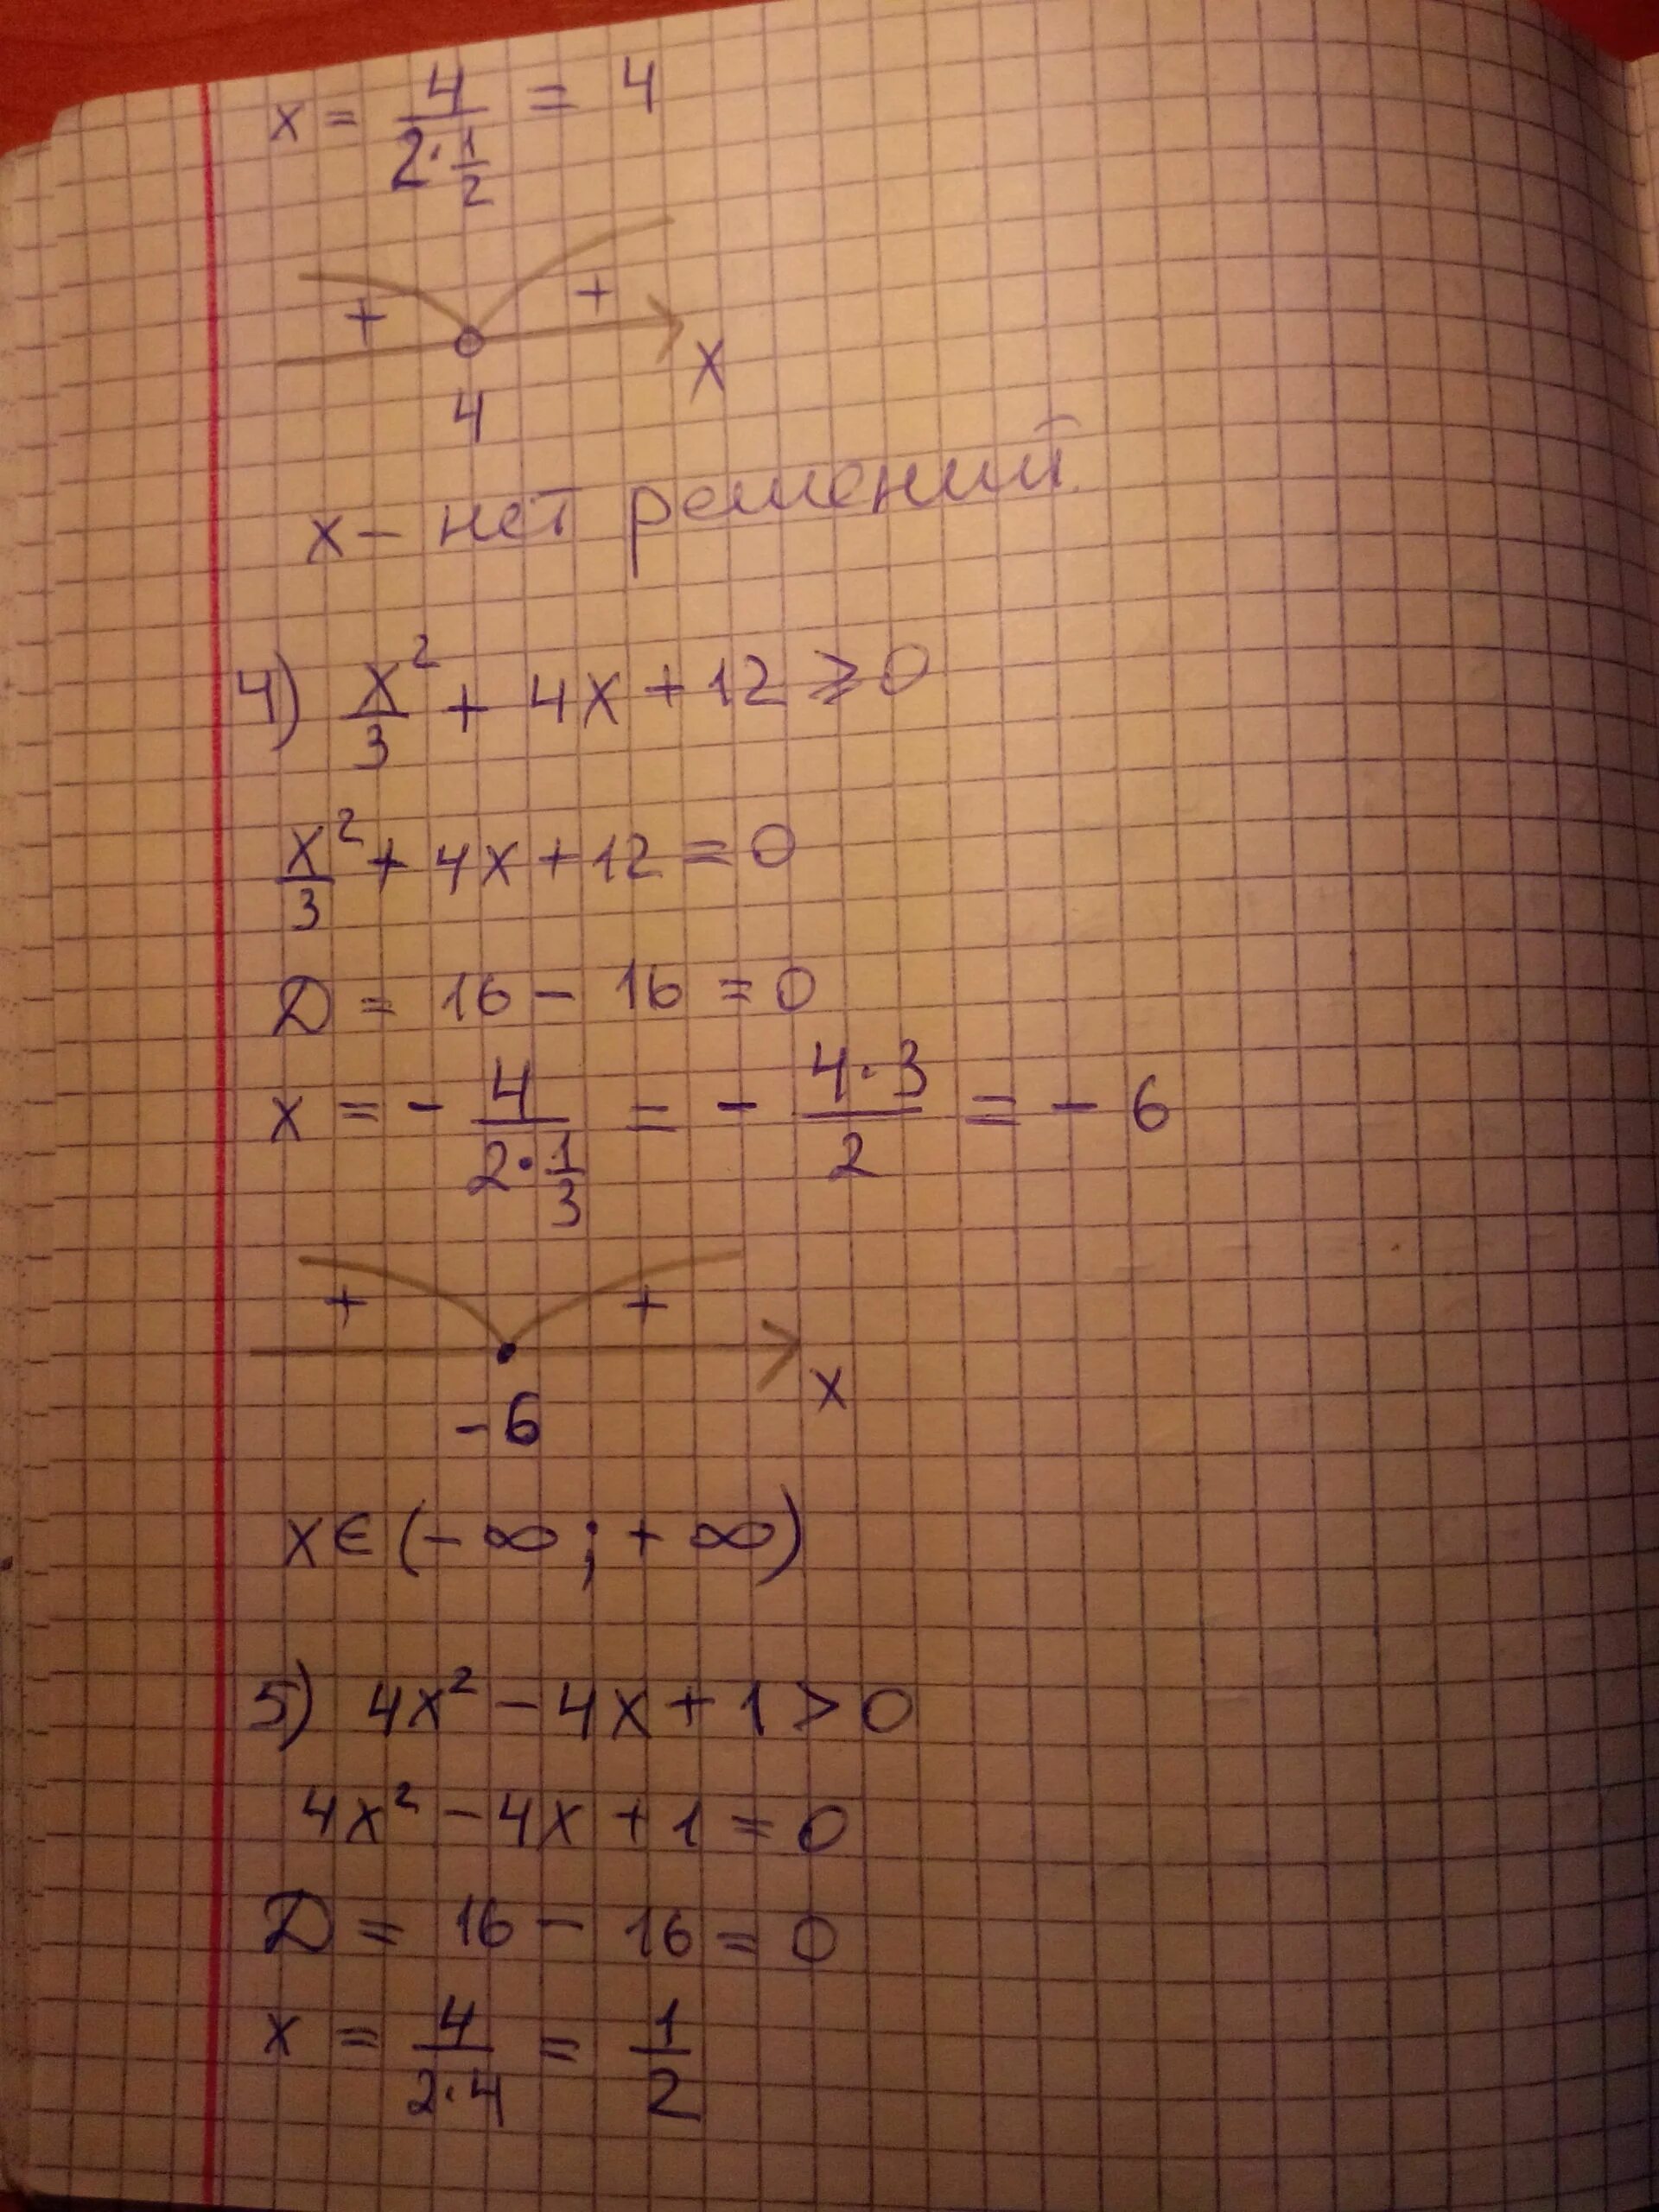 x = 4/(2·1/2) = 4
+ +
4 x
x – нет решений
4) x²/3 + 4x + 12 ⩾ 0
x²/3 + 4x + 12 = 0
D = 16 – 16 = 0
x = – 4/(2·1/3) = – (4·3)/2 = – 6
+ +
–6 x
x ∈ (–∞; +∞)
5) 4x² – 4x + 1 > 0
4x² – 4x + 1 = 0
D = 16 – 16 = 0
x = 4/(2·4) = 1/2